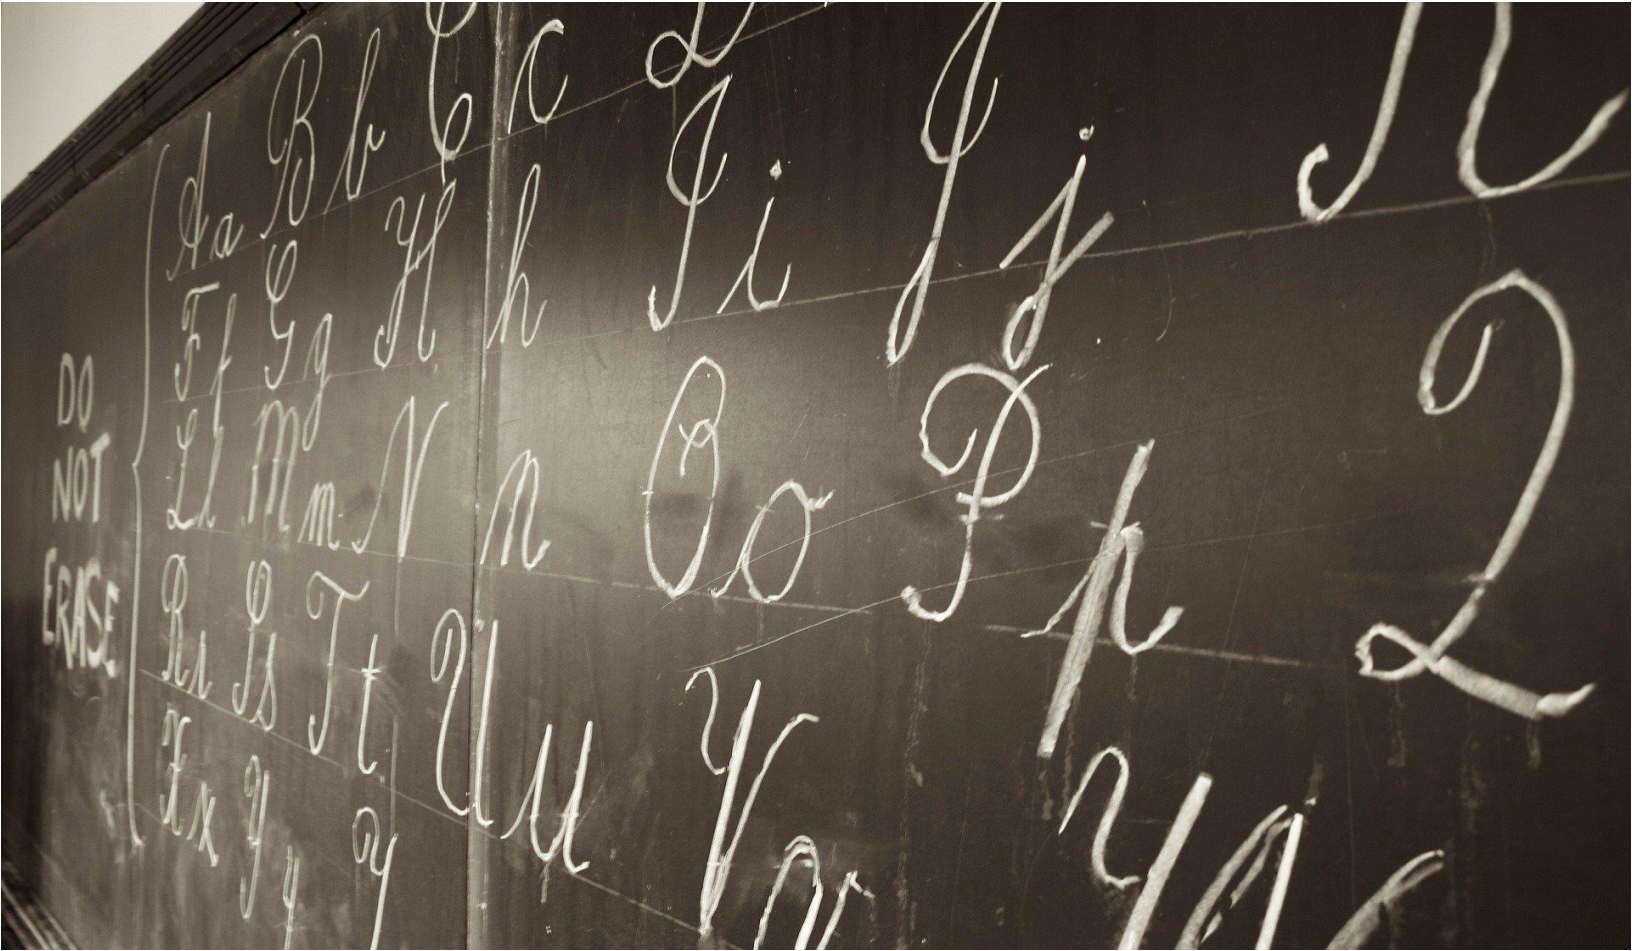 DO
NOT
ERASE
A a B b C c D
F f G g H h I i J j K
L l M m N n O o P p Q
R r S s T t U u V v W
X x Y y Z